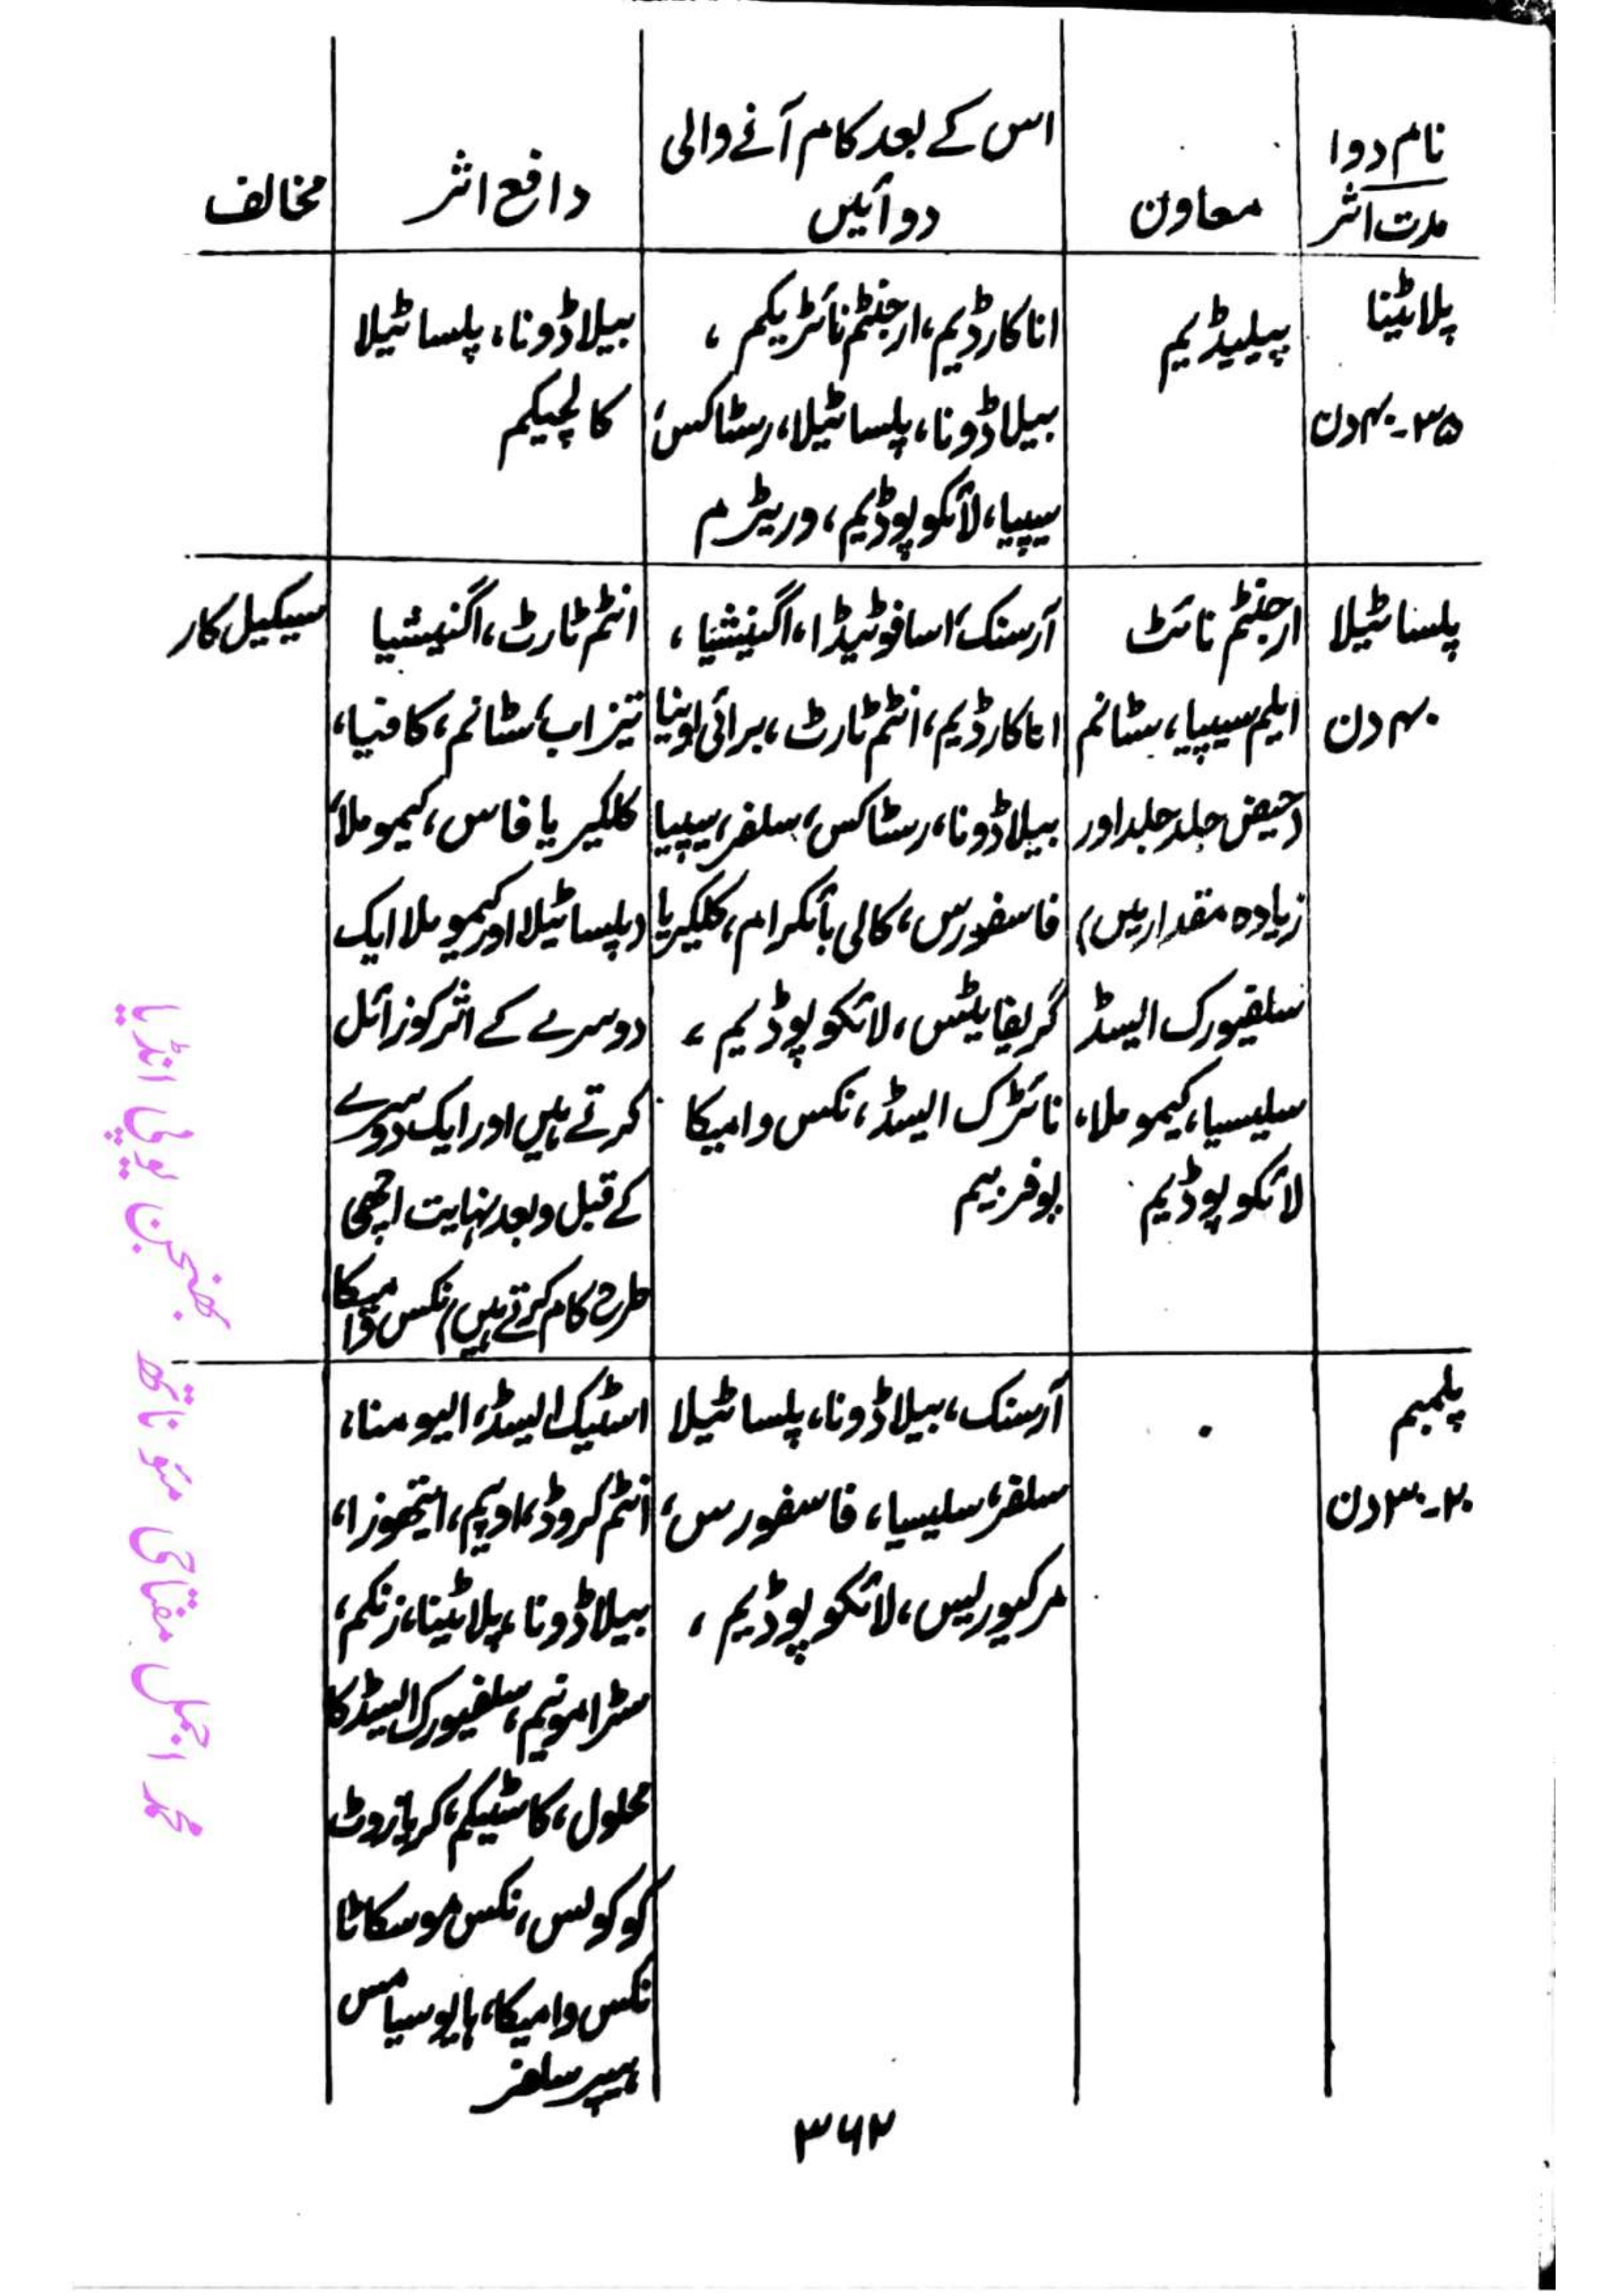 نام دوا
مدت اثر
معاون
اس کے بعد کام آنے والی
دوائیں
دافع اثر
مخالف
پلاٹینا
۳۵-۴۰ دن
پیلیڈیم
اناکارڈیم، ارجنٹم نائٹریکم،
بیلاڈونا، پلساٹیلا، رسٹاکس،
سیپیا، لائکوپوڈیم، وریٹرم
بیلاڈونا، پلساٹیلا
کالچیکم
پلساٹیلا
۴۰ دن
ارجنٹم نائٹ
ایلم سیپیا، سٹانم
(حیض جلد جلد اور
زیادہ مقدار میں)
سلفیورک ایسڈ
سلیسیا، کیموملا،
لائکوپوڈیم
آرسنک، اسافوٹیڈا، اگنیشیا،
اناکارڈیم، انٹم ٹارٹ، برائی اونیا
بیلاڈونا، رسٹاکس، سلفر، سیپیا
فاسفورس، کالی بائکرام، کلکیریا
گریفایٹس، لائکوپوڈیم،
نائٹرک ایسڈ، نکس وامیکا
یوفربیم
انٹم ٹارٹ، اگنیشیا
تیزاب، سٹانم، کافیا،
کلکیریا فاس، کیموملا،
(پلساٹیلا اور کیموملا ایک
دوسرے کے اثر کو زائل
کرتے ہیں اور ایک دوسرے
کے قبل و بعد نہایت اچھی
طرح کام کرتے ہیں) نکس وامیکا
سیکیل کار
پلمبم
۲۰-۳۰ دن
آرسنک، بیلاڈونا، پلساٹیلا
سلفر، سلیسیا، فاسفورس،
مرکیورلیس، لائکوپوڈیم،
اسٹیک ایسڈ، الیومنا،
انٹم کروڈ، اوپیم، ایتھوزا،
بیلاڈونا، پلاٹینا، زنکم،
سٹرامونیم، سلفیورک ایسڈ کا
محلول، کاسٹیکم، کریازوٹ
کوکولس، نکس موسکاٹا
نکس وامیکا، ہایوسیامس
ہیپر سلفر
۳۶۲
محمد اجمل مفتاحی مئو ناتھ بھنجن یوپی انڈیا